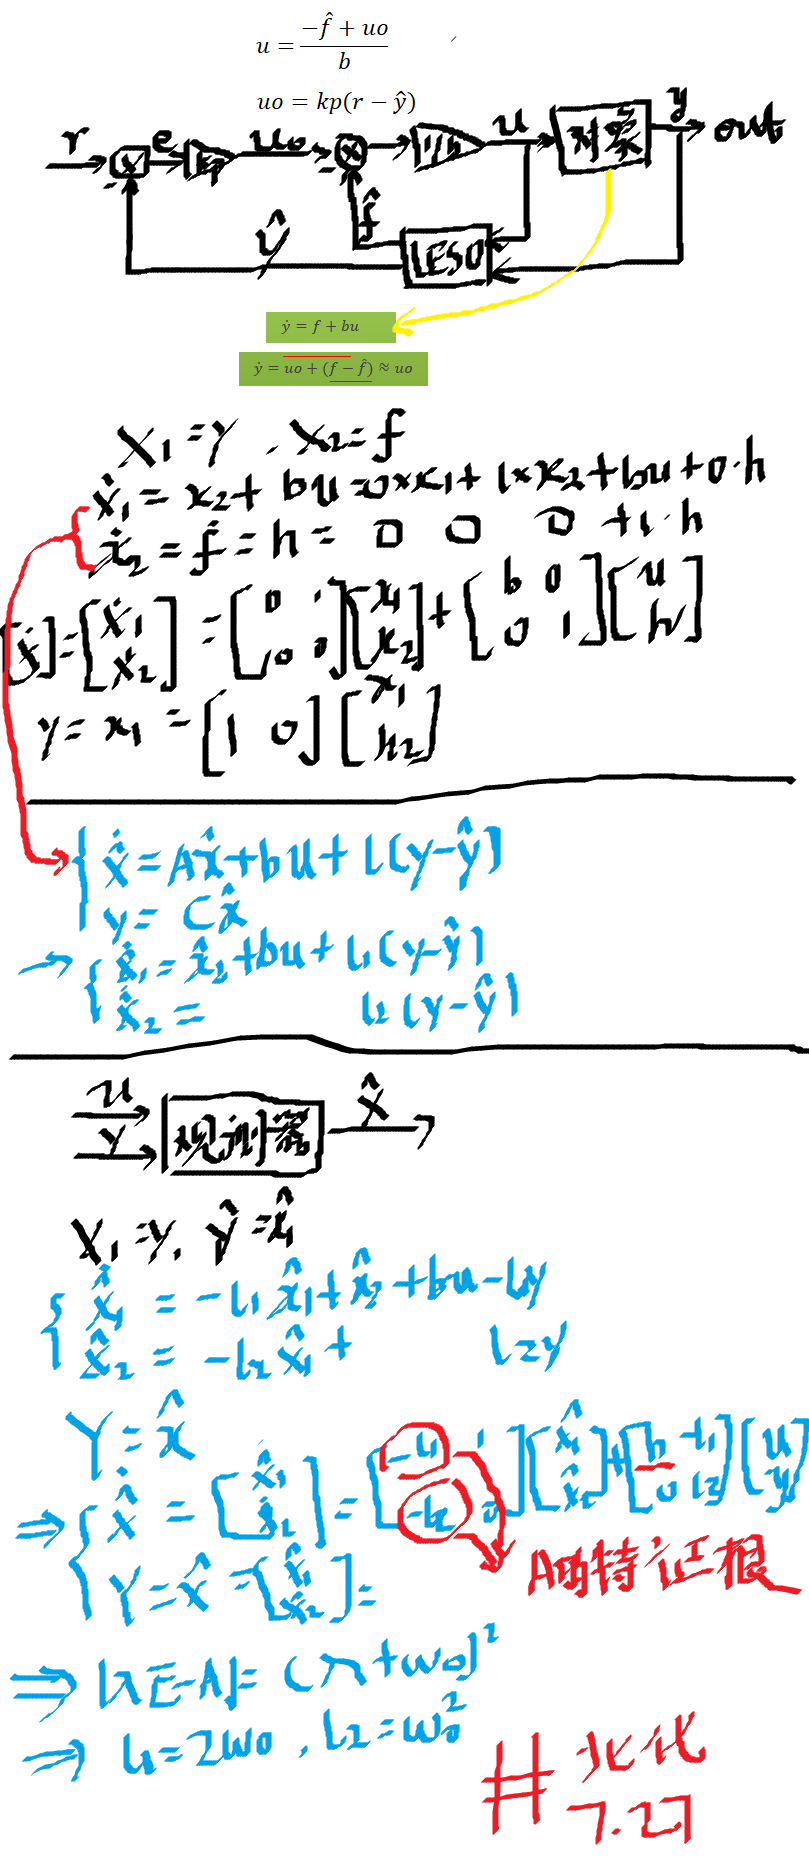 u = (-f̂ + uo) / b
uo = kp(r - ŷ)
r e kp uo 1/b u 对象 y out
f̂
ŷ LESO
ẏ = f + bu
ẏ = uo + (f - f̂) ≈ uo
x₁ = y , x₂ = f
ẋ₁ = x₂ + bu = 0×x₁ + 1×x₂ + bu + 0·h
ẋ₂ = ḟ = h = 0 0 0 + 1·h
[ẋ] = [ẋ₁ ẋ₂] = [0 1 0 0][x₁ x₂] + [b 0 0 1][u h]
y = x₁ = [1 0][x₁ x₂]
x̂̇ = Ax̂ + bu + l(y - ŷ)
y = Cx̂
→ x̂̇₁ = x̂₂ + bu + l₁(y - ŷ)
x̂̇₂ = l₂(y - ŷ)
u
y 观测器 x̂
x₁ = y, ŷ = x̂₁
x̂̇₁ = -l₁x̂₁ + x̂₂ + bu - l₁y
x̂̇₂ = -l₂x̂₁ + l₂y
Y = x̂
⇒ x̂̇ = [x̂̇₁ x̂̇₂] = [-l₁ 1 -l₂ 0][x̂₁ x̂₂] + [b +l₁ 0 l₂][u y]
Y = x̂ = [x̂₁ x̂₂] =
A的特征根
⇒ |λE-A| = (λ+w₀)²
⇒ l₁ = 2w₀ , l₂ = w₀²
# 北化
7.27